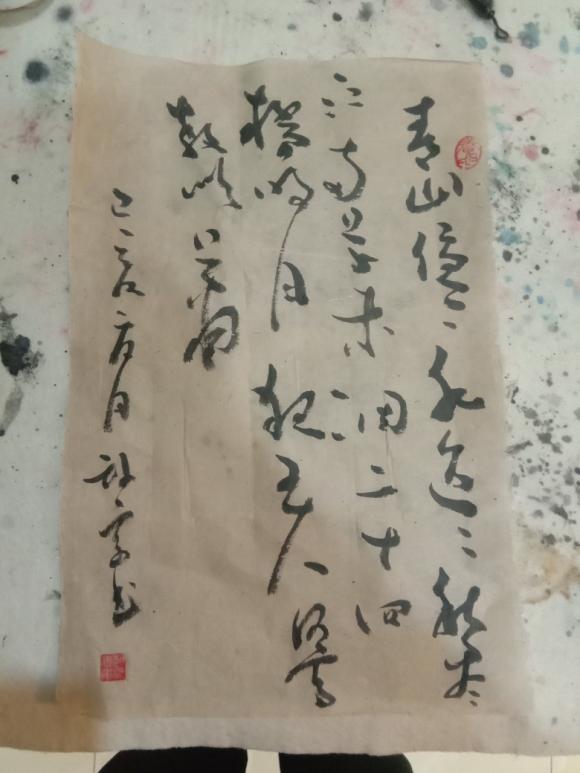 青山隐〻水迢〻秋尽
江南草未凋二十四
桥明月夜玉人何处
教吹箫
月
书